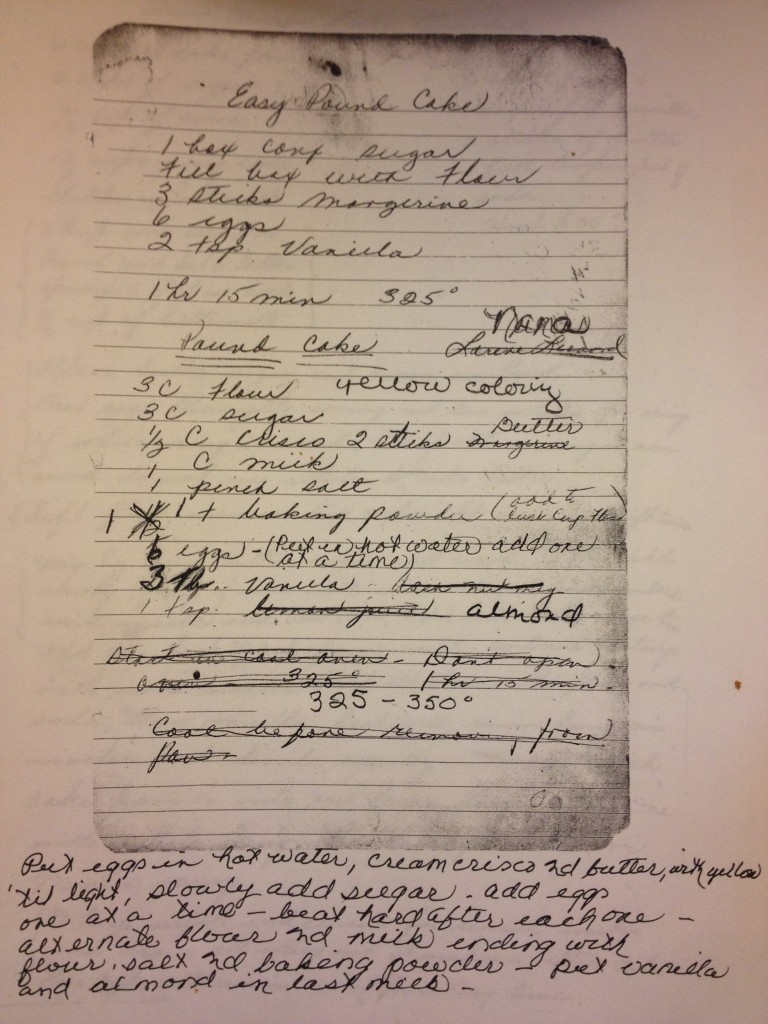 Easy Pound Cake
1 box conf sugar
Fill box with Flour
3 sticks margerine
6 eggs
2 tsp Vanilla
1 hr 15 min 325°
Nana
Pound Cake Larene
3 C Flour yellow coloring
3 C sugar
Butter
½ C Crisco 2 sticks margerine
1 C milk
1 pinch salt
1 ½ 1 t baking powder (add to last cup flour
6 eggs - (Put in hot water add one
at a time)
3 Vanilla -
1 tsp. lemon juice almond
Start in cool oven - Dont open
oven - 325° 1 hr 15 min.
325 - 350°
Cool before removing from
Pan -
Put eggs in hot water, cream crisco nd butter, with yellow
'til light, slowly add sugar. add eggs
one at a time - beat hard after each one -
alternate flour nd milk ending with
flour, salt nd baking powder - put vanilla
and almond in last milk -